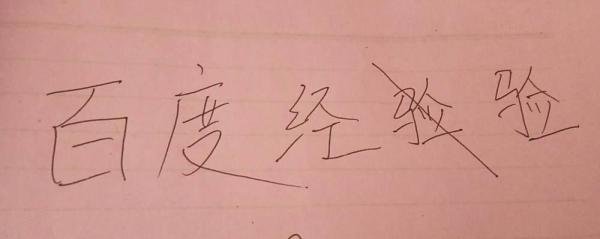 百度经验验